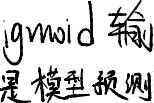 igmoid 输
是模型预测